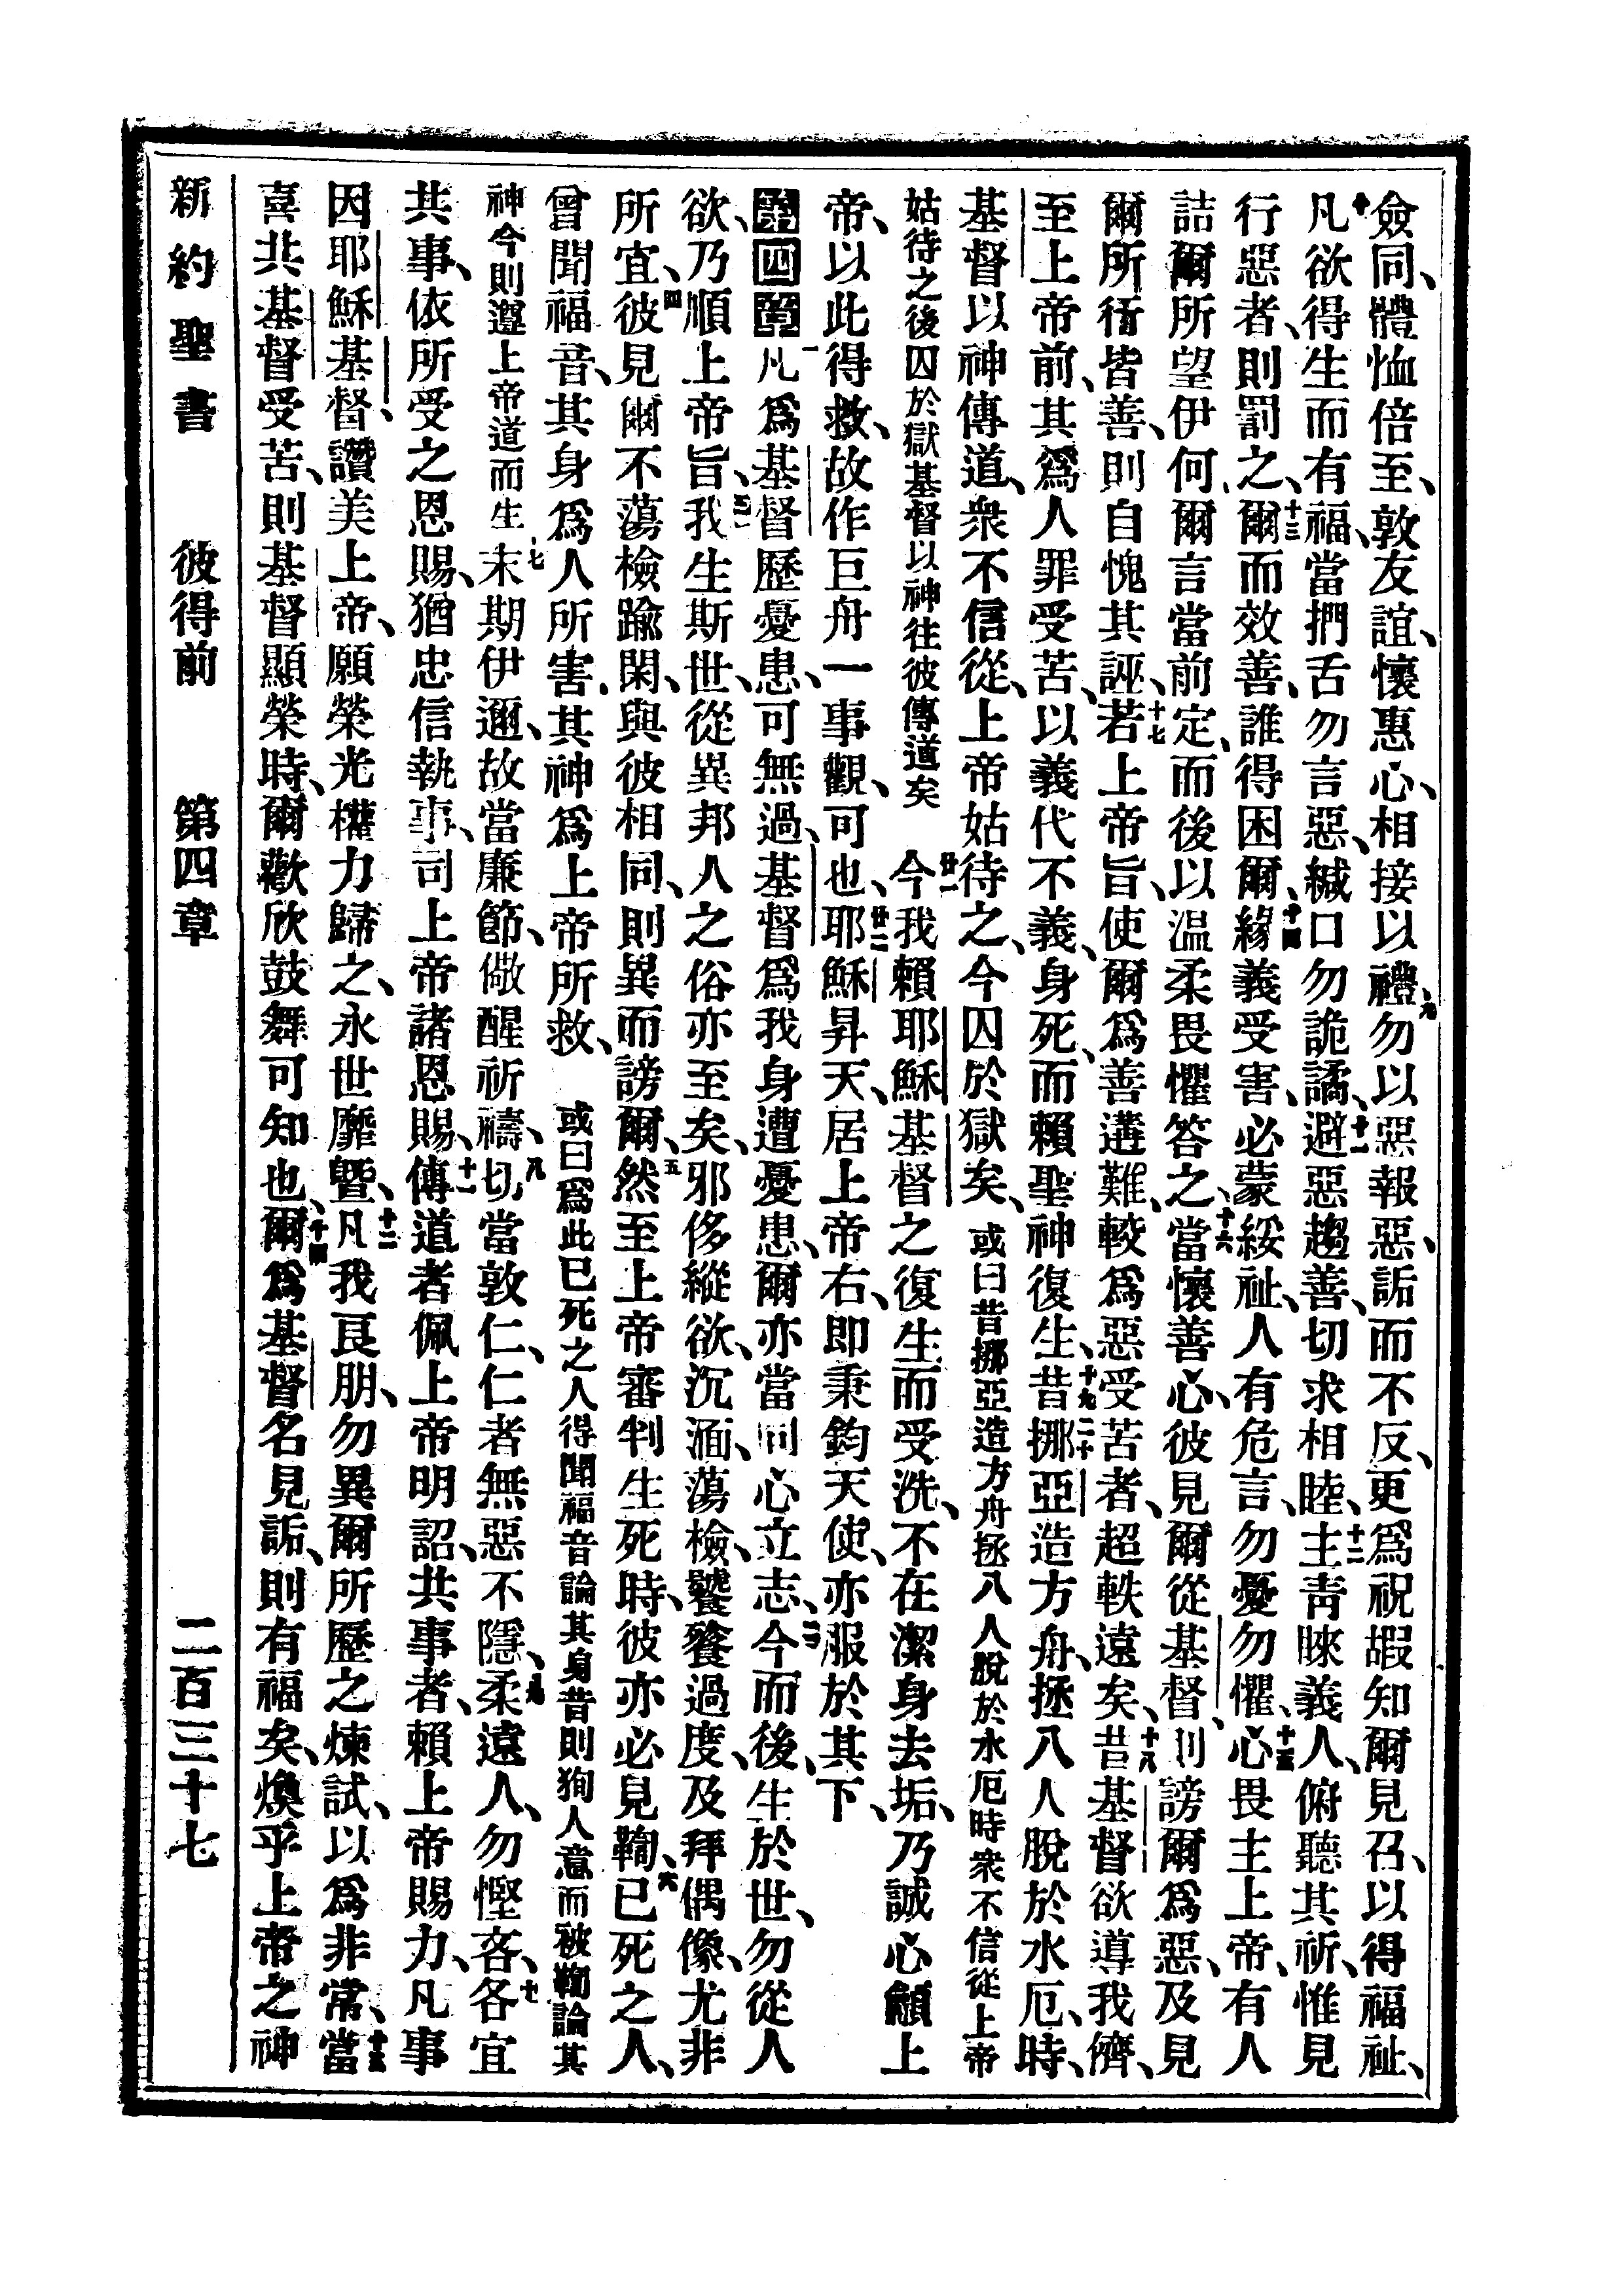 僉同、體恤倍至、敦友誼、懷惠心、相接以禮、九勿以惡報惡、詬而不反、更爲祝嘏知爾見召、以得福祉、
十凡欲得生而有福、當捫舌勿言惡、緘口勿詭譎、十一避惡趨善、切求相睦、十二主靑睞義人、俯聽其祈、惟見
行惡者、則罰之、十三爾而效善、誰得困爾、十四緣義受害、必蒙綏祉、人有危言、勿憂勿懼、十五心畏主上帝、有人
詰爾所望伊何、爾言當前定、而後以温柔畏懼答之、十六當懷善心、彼見爾從基督、則謗爾爲惡、及見
爾所行皆善、則自愧其誣、十七若上帝旨、使爾爲善遘難、較爲惡受苦者、超軼遠矣、十八昔基督欲導我儕、
至上帝前、其爲人罪受苦、以義代不義、身死、而賴聖神復生、十九二十昔挪亞造方舟、拯八人脫於水厄、時、
基督以神傳道、衆不信從、上帝姑待之、今囚於獄矣、或曰昔挪亞造方舟拯八人脫於水厄時衆不信從上帝
姑待之後囚於獄基督以神往彼傳道矣 廿一今我賴耶穌基督之復生而受洗、不在潔身去垢、乃誠心籲上
帝、以此得救、故作巨舟一事觀、可也、廿二耶穌昇天、居上帝右、卽秉鈞天使、亦服於其下、
第四章 一凡爲基督歷憂患、可無過、基督爲我身遭憂患、爾亦當同心立志、二今而後、生於世、勿從人
欲、乃順上帝旨、三我生斯世、從異邦人之俗亦至矣、邪侈縱欲、沉湎、蕩檢、饕餮過度、及拜偶像、尤非
所宜、四彼見爾不蕩檢踰閑、與彼相同、則異而謗爾、五然至上帝審判生死時、彼亦必見鞫、六已死之人、
曾聞福音、其身爲人所害、其神爲上帝所救、 或曰爲此已死之人得聞福音論其身昔則狥人意而被鞫論其
神今則遵上帝道而生 七末期伊邇、故當廉節、儆醒祈禱、八切當敦仁、仁者無惡不隱、九柔遠人、勿慳吝、十各宜
共事、依所受之恩賜、猶忠信執事、司上帝諸恩賜、十一傳道者佩上帝明詔、共事者、賴上帝賜力、凡事
因耶穌基督、讚美上帝、願榮光權力歸之、永世靡曁、十二凡我良朋、勿異爾所歷之煉試、以爲非常、十三當
喜共基督受苦、則基督顯榮時、爾歡欣鼓舞可知也、十四爾爲基督名見詬、則有福矣、煥乎上帝之神
新約聖書 彼得前 第四章 二百三十七